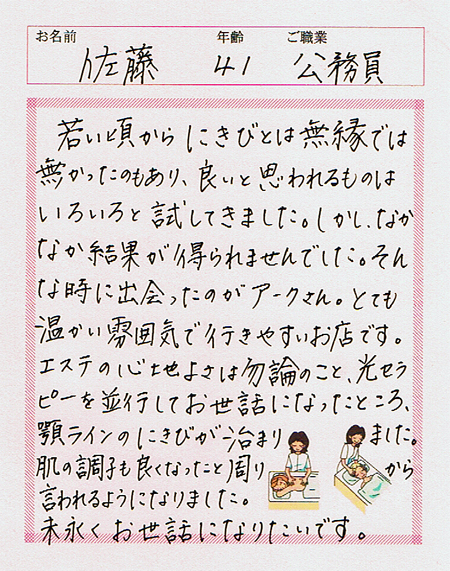 お名前 年齢 ご職業
佐藤 41 公務員
若い頃からにきびとは無縁では
無かったのもあり、良いと思われるものは
いろいろと試してきました。しかし、なか
なか結果が得られませんでした。そん
な時に出会ったのがアークさん。とても
温かい雰囲気で行きやすいお店です。
エステの心地よさは勿論のこと、光セラ
ピーを並行してお世話になったところ、
顎ラインのにきびが治まりました。
肌の調子も良くなったと周りから
言われるようになりました。
末永くお世話になりたいです。